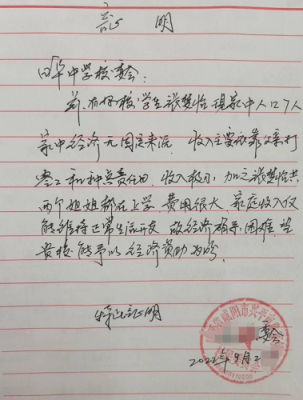 证 明
中学校委会:
兹有你校学生张梦怡现家中人口7人
家中经济无固定来源,收入主要为靠父亲打
零工和种点责任田,收入极小,加之张梦怡共
两个姐姐都在上学,费用很大,家庭收入仅
能维持正常生活开支,故经济确系困难,望
贵校能予以经济资助为盼
特此证明
委会
2022年9月2